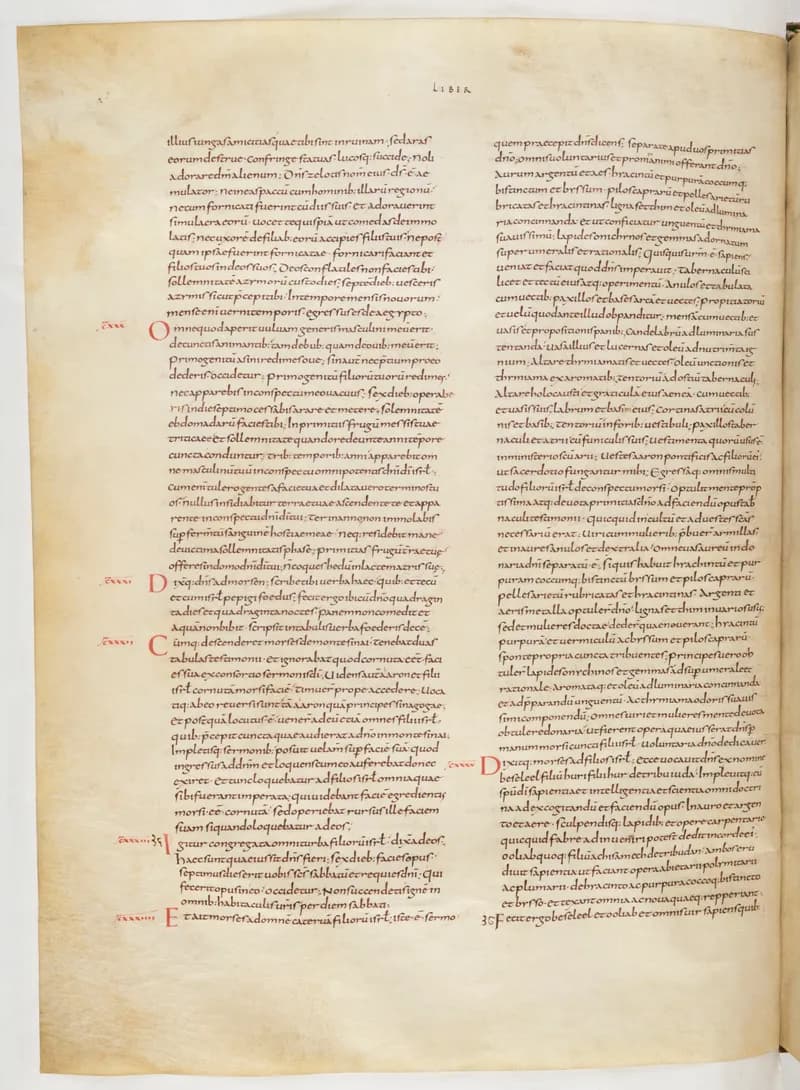 LIBER
illius iungas amicitias quae tibi sint in ruinam; sed aras
eorum destrue confringe statuas lucosq; succide; Noli
adorare dm̄ alienum; Dns̄ zelotis nomen eius ds̄ ē ae
mulator; ne ineas pactū cum hominib; illarū regionū
ne cum fornicati fuerint cū diis suis et adoraverint
simulacra eorū vocet te quispiā ut comedas de immo
latis; nec uxorē de filiab; eorū accipies filiis tuis; ne post
quam ipsae fuerint fornicatae fornicari faciant et
filios tuos in deos suos; Deos conflatiles non facies tibi
sollemnitatē azymorū custodies; septē dieb; vesceris
azymis sicut p̄cepi tibi In tempore mensis novorum
mense eni verni temporis egressus es de aegypto;
cxxx Omne quod aperit vulvam generis masculini meū erit
de cunctis animantib; tam de bub; quam de ovib; meū erit;
primogenitū asini redimes ove; sin aut nec p̄tium pro eo
dederis occidetur; primogenitū filiorū tuorū redimes;
nec apparebis in conspectu meo vacuus; sex dieb; operabe
ris in die septimo cessabis arare et metere; sollemnitatē
ebdomadarū facies tibi In primitiis frugū messis tuae
triticeae et sollemnitatē quando redeunte anni tepore
cuncta conduntur; trib; temporib; anni apparebit om
ne masculinū tuū in conspectu omnipotentis dn̄i dī isrl̄;
cum eni tulero gentes a facie tua et dilatavero terminos tu
os nullus insidiabitur terrae tuae ascendente te et appa
rente in conspectu dn̄i dī tui; ter in anno non immolabis
sup fermtū sanguinē hostiae meae neq; residebit mane
de victima sollemnitatis phase; primitias frugū trae tuae
offeres in domo dn̄i dī tui; n̄ coques hedū in lacte matris suae;
cxxxi Dixq; dn̄s ad moysen; scribe tibi verba haec quib; et tecū
et cum isrl̄ pepigi foedus; fecit ergo ibi cū dn̄o quadragin
ta dies et quadraginta noctes; panem non comedit et
aquā non bibit et scripsit in tabulis verba foederis decē;
cxxxii Cūmq; descenderet moyses de monte sinai tenebat duas
tabulas testamonii et ignorabat quod cornuta eēt faci
es sua ex consortio sermonis dī; Videns aut aaron et filii
isrl̄ cornutā moysi faciē timuer̄ prope accedere; Voca
tiq; ab eo reversi sunt tā aaron quā principes sinagogae;
et postquā locutus ē venerunt ad eū etiā omnes filii isrl̄;
quib; p̄cepit cuncta quae audierat a dn̄o in monte sinai;
Impletisq; sermonib; posuit velam sup faciē suā quod
ingressus ad dn̄m et loquens cum eo auferebat donec
exiret et tunc loquebatur ad filios isrl̄ omnia quae
sibi fuerant imperata; qui videbant faciē egredientis
moysi eē cornutā sed operiebat rursus ille faciem
suam siquando loquebatur ad eos;
cxxxiii 35 Igitur congregata omni turba filiorū isrl̄ dixit ad eos;
haec sunt quae iussit dn̄s fieri; sex dieb; facies opus
septimus dies erit vobis sc̄s sabbatū et requies dn̄i qui
fecerit opus in eo occidetur; Non succendetis ignē in
omnib; habitaculis uris̄ per diem sabbati;
cxxxiiii Et ait moyses ad omnē catervā filiorū isrl̄; iste ē sermo
quem praecepit dn̄s dicens; separate apud vos primitias
dn̄o; omnis voluntarius et prono animo offerat dn̄o;
Aurum argentū et aes hyacintū et purpurā coccumq;
bistinctum et byssum pilos caprarū et pelles arietū ru
bricatas et hyacintinas ligna setthim et oleū ad lumina
ria concinnanda et ut conficiatur unguentū et thymiama
suavissimū; lapides onichinos et gemmas ad ornatum
superumeralis et rationalis; Quisquis ur̄m ē sapiens
veniat et faciat quod dn̄s imperavit tabernaculū sci
licet et tectū eius atq; operimentū Anulos et tabulata
cum vectib; paxillos et bases arcā et vectes; propitiatoriū
et velū quod ante illud obpanditur; mensā cū vectib; et
vasis et propositionis panib; Candelabrū ad luminaria sus
tentanda vasa illius et lucernas et oleū ad nutrimta ig
nium; Altare thymiamatis et vectes; oleū unctionis et
thymiama ex aromatib; tentoriū ad ostiū tabernaculi;
Altare holocausti et graticulā eius aeneā cum vectib;
et vasis suis; labrum et basim eius; Cortinas atrii cū colū
nis et basib; tentoriū in forib; vestibuli; paxillos taber
naculi et atrii cū funiculis suis; Vestimenta quorū usus ē
in ministerio sc̄uarii; Vestes aaron pontificis ac filiorū ei;
ut sacerdotio fungantur mihi; Egressaq; omnis multi
tudo filiorū isrl̄ de conspectu moysi Optulit mente prōp
tissima atq; devota primitias dn̄o ad faciendū opus tab
naculi testimonii quicquid in cultū et ad vestes sc̄as
necessariū erat Viri cum mulierib; p̄buer̄ armillas;
et inaures anulos et dextralia; Omne vas aureū in do
naria dn̄i separatū ē; siquis habuit hyacintū et pur
puram coccumq; bistinctū byssum et pilos caprarū
pelles arietū rubricatas et hyacintinas Argenti et
aeris metalla optuler̄ dn̄o ligna setthim in varios usus;
sed et mulieres doctae deder̄ quae noverant hyacintū
purpurā et vermiculū ac byssum et pilos caprarū
sponte propria cuncta tribuentes; principes vero ob
tuler̄ lapides onychinos et gemmas ad sup umerale et
rationale aromataq; et oleū ad luminaria concinnanda
et ad p̄parandū unguentū Ac thymiama odoris suavis
simi componendū; Omnes viri et mulieres mente devota
obtuler̄ donaria ut fierent opera quae iusserat dn̄s p̄
manum moysi cuncti filii isrl̄ voluntaria dn̄o dedicaver̄
cxxxv Dixitq; moyses ad filios isrl̄; ecce vocavit dn̄s ex nomine
beseleel filiū huri filii hur de tribu iuda Implevitq; eū
spū dī sapientiae et intelligentiae et scientia omni doctri
na ad excogitandū et faciendū opus In auro et argen
to et aere sculpendisq; lapidib; et opere carpentario
quicquid fabre adinveniri potest dedit in corde ei;
ooliab quoq; filiū achisamech de tribu dan Ambos eru
divit sapientia ut faciant opera abietarii polymitarii
ac plumarii de hyacinto ac purpura coccoq; bistincto
et bysso et texant omnia ac nova quaeq; repperiant
36 Fecit ergo beseleel et ooliab et omnis vir sapiens quib;